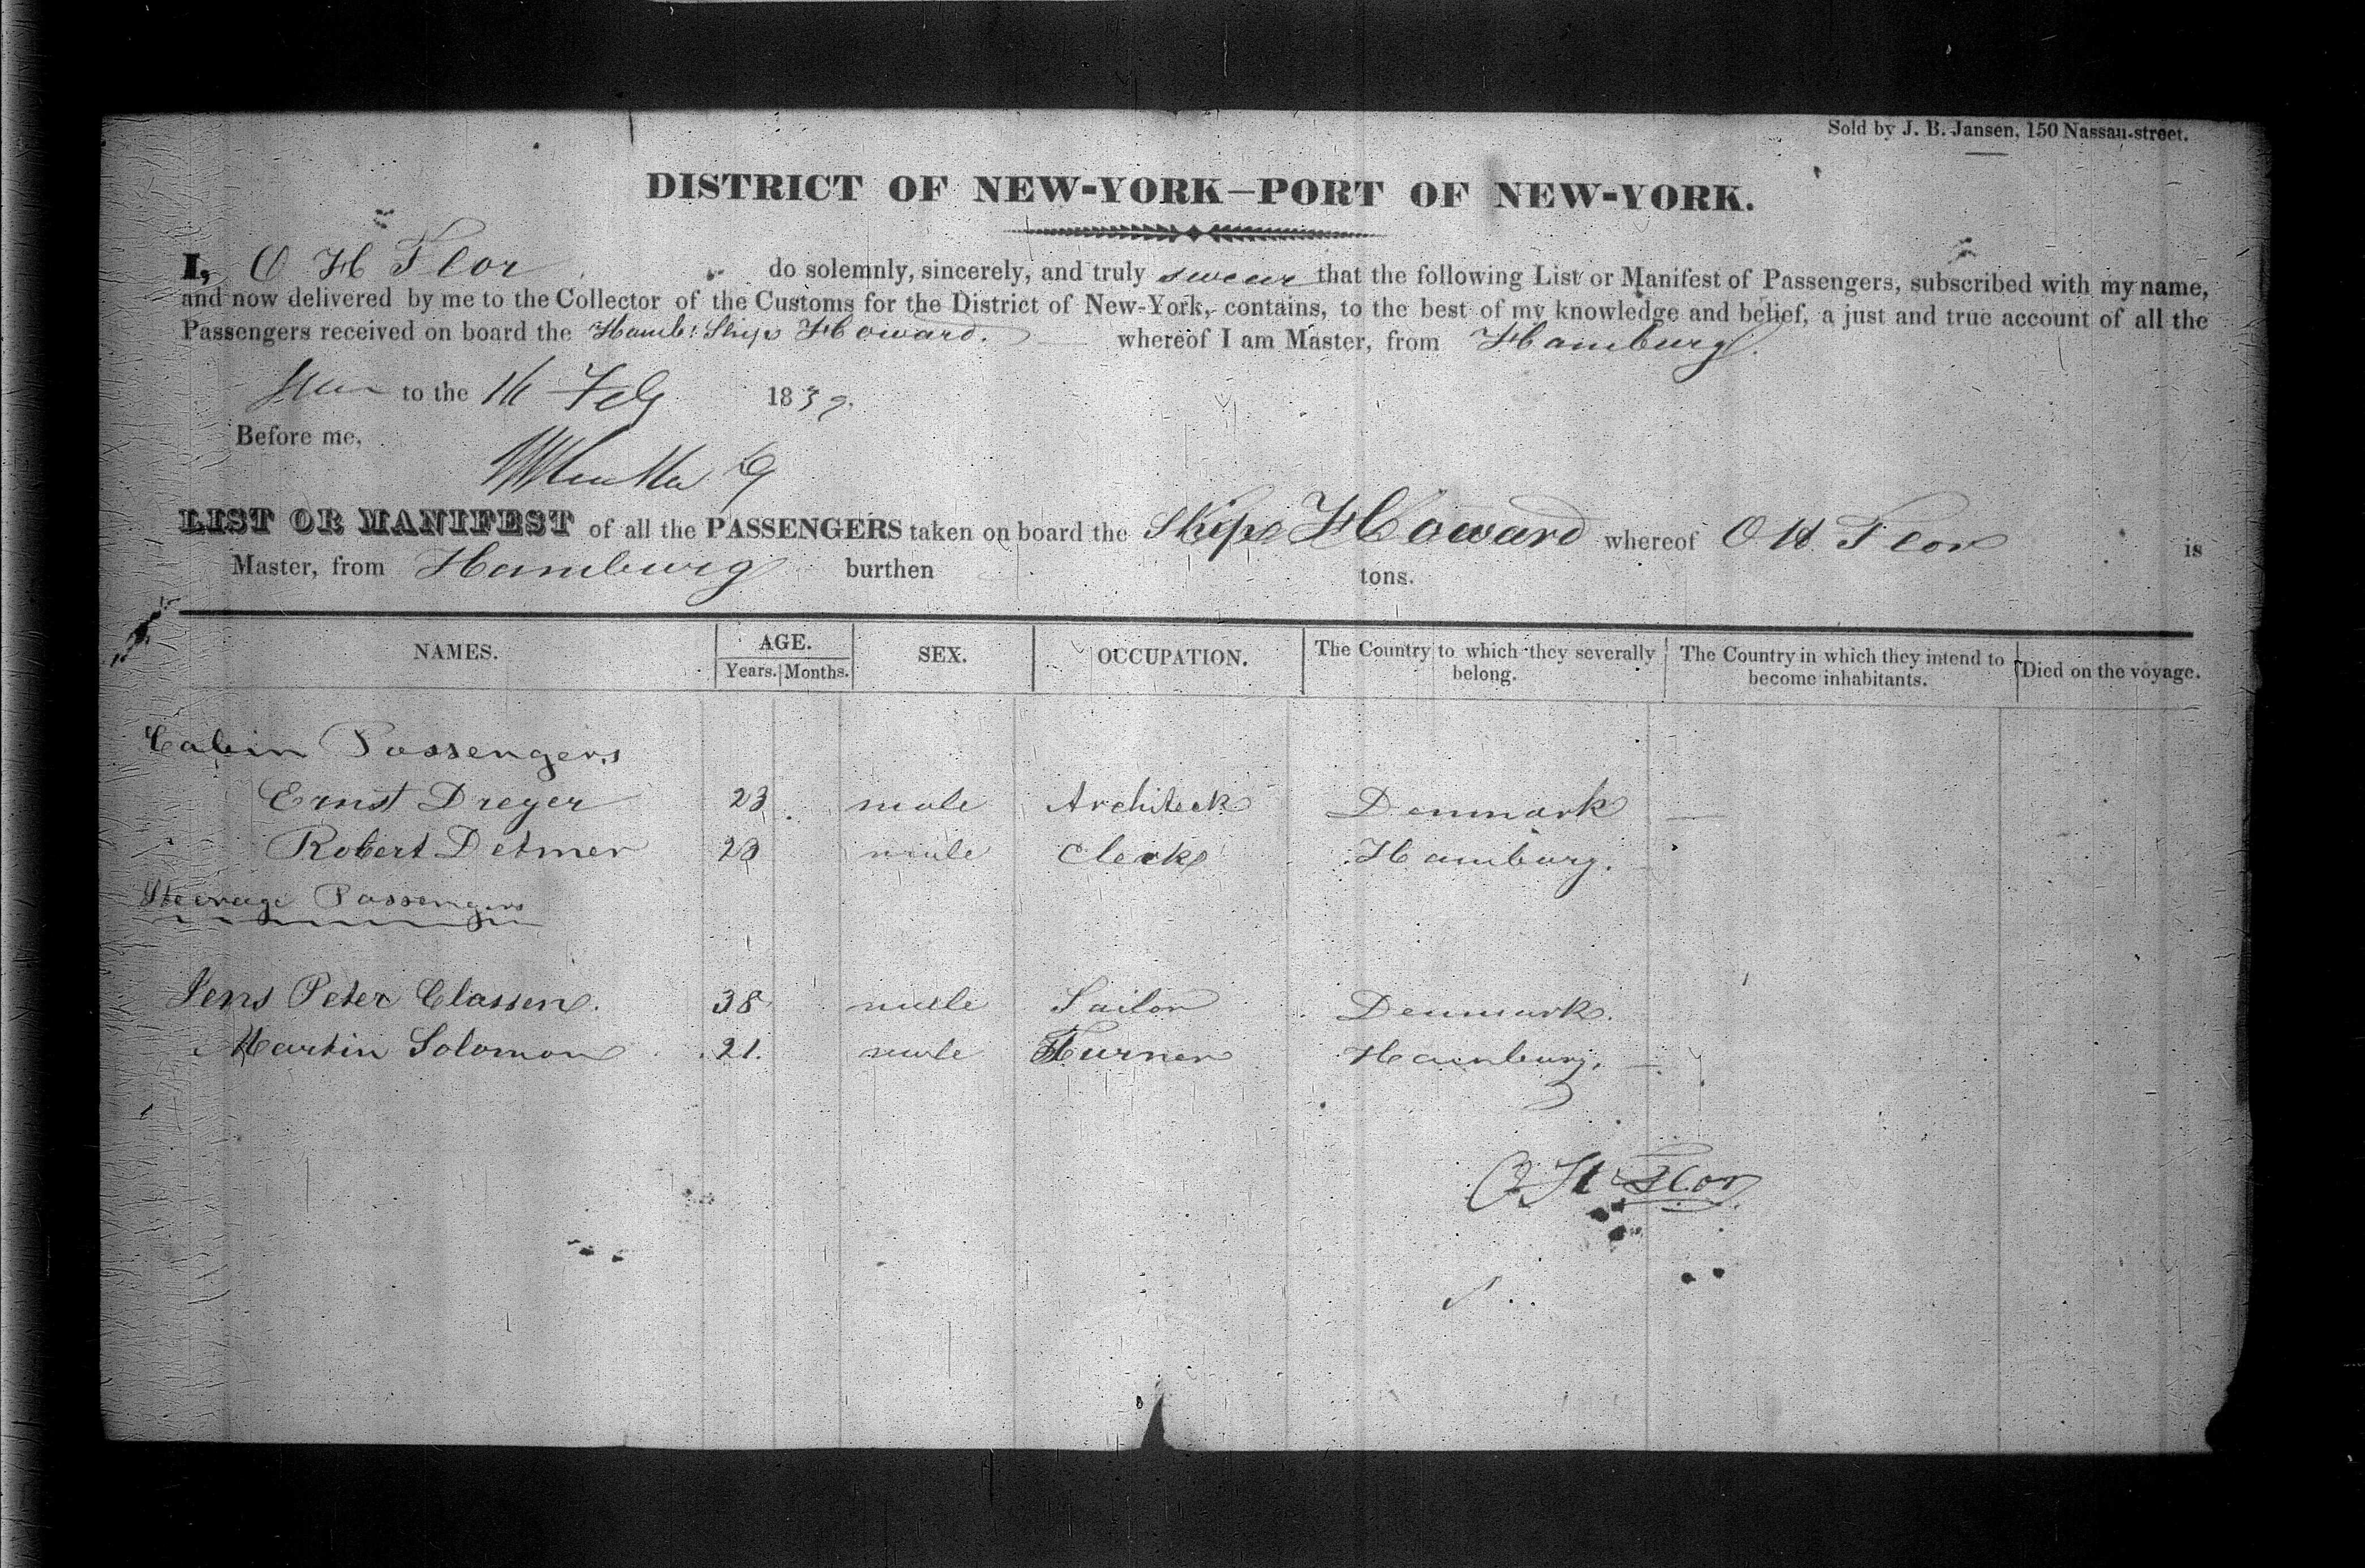 Sold by J. B. Jansen, 150 Nassau-street.
DISTRICT OF NEW-YORK—PORT OF NEW-YORK.
I, O H Flor do solemnly, sincerely, and truly swear that the following List or Manifest of Passengers, subscribed with my name,
and now delivered by me to the Collector of the Customs for the District of New-York, contains, to the best of my knowledge and belief, a just and true account of all the
Passengers received on board the Hamb: Ship Howard. whereof I am Master, from Hamburg.
to the 16 Feb 1839.
Before me,
LIST OR MANIFEST of all the PASSENGERS taken on board the Ship Howard whereof O H Flor is
Master, from Hamburg burthen tons.
NAMES. AGE. SEX. OCCUPATION. The Country to which they severally belong. The Country in which they intend to become inhabitants. Died on the voyage.
Years. Months.
Cabin Passengers
Ernst Dreyer 23 male Architeck Denmark —
Robert Detmer 20 male Clerk Hamburg.
Steerage Passengers
Jens Peter Classen. 38 male Sailor Denmark.
Martin Solomon 21. male Turner Hamburg. —
O H Flor